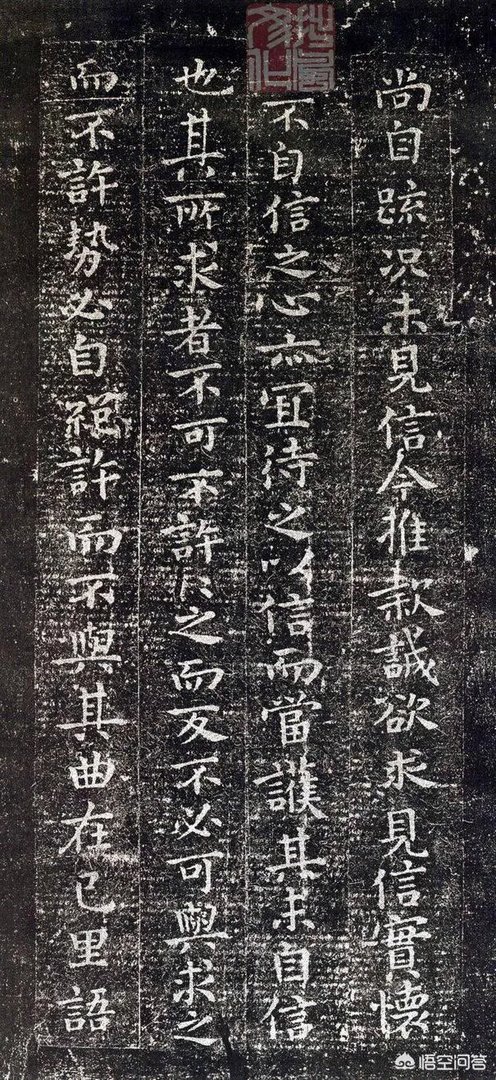 尚自疏况未見信今推款誠欲求見信實懷
不自信之心亦宜待之以信而當護其未自信
也其所求者不可不許〻之而反不必可與求之
而不許勢必自絕許而不與其曲在己里語
悟空问答